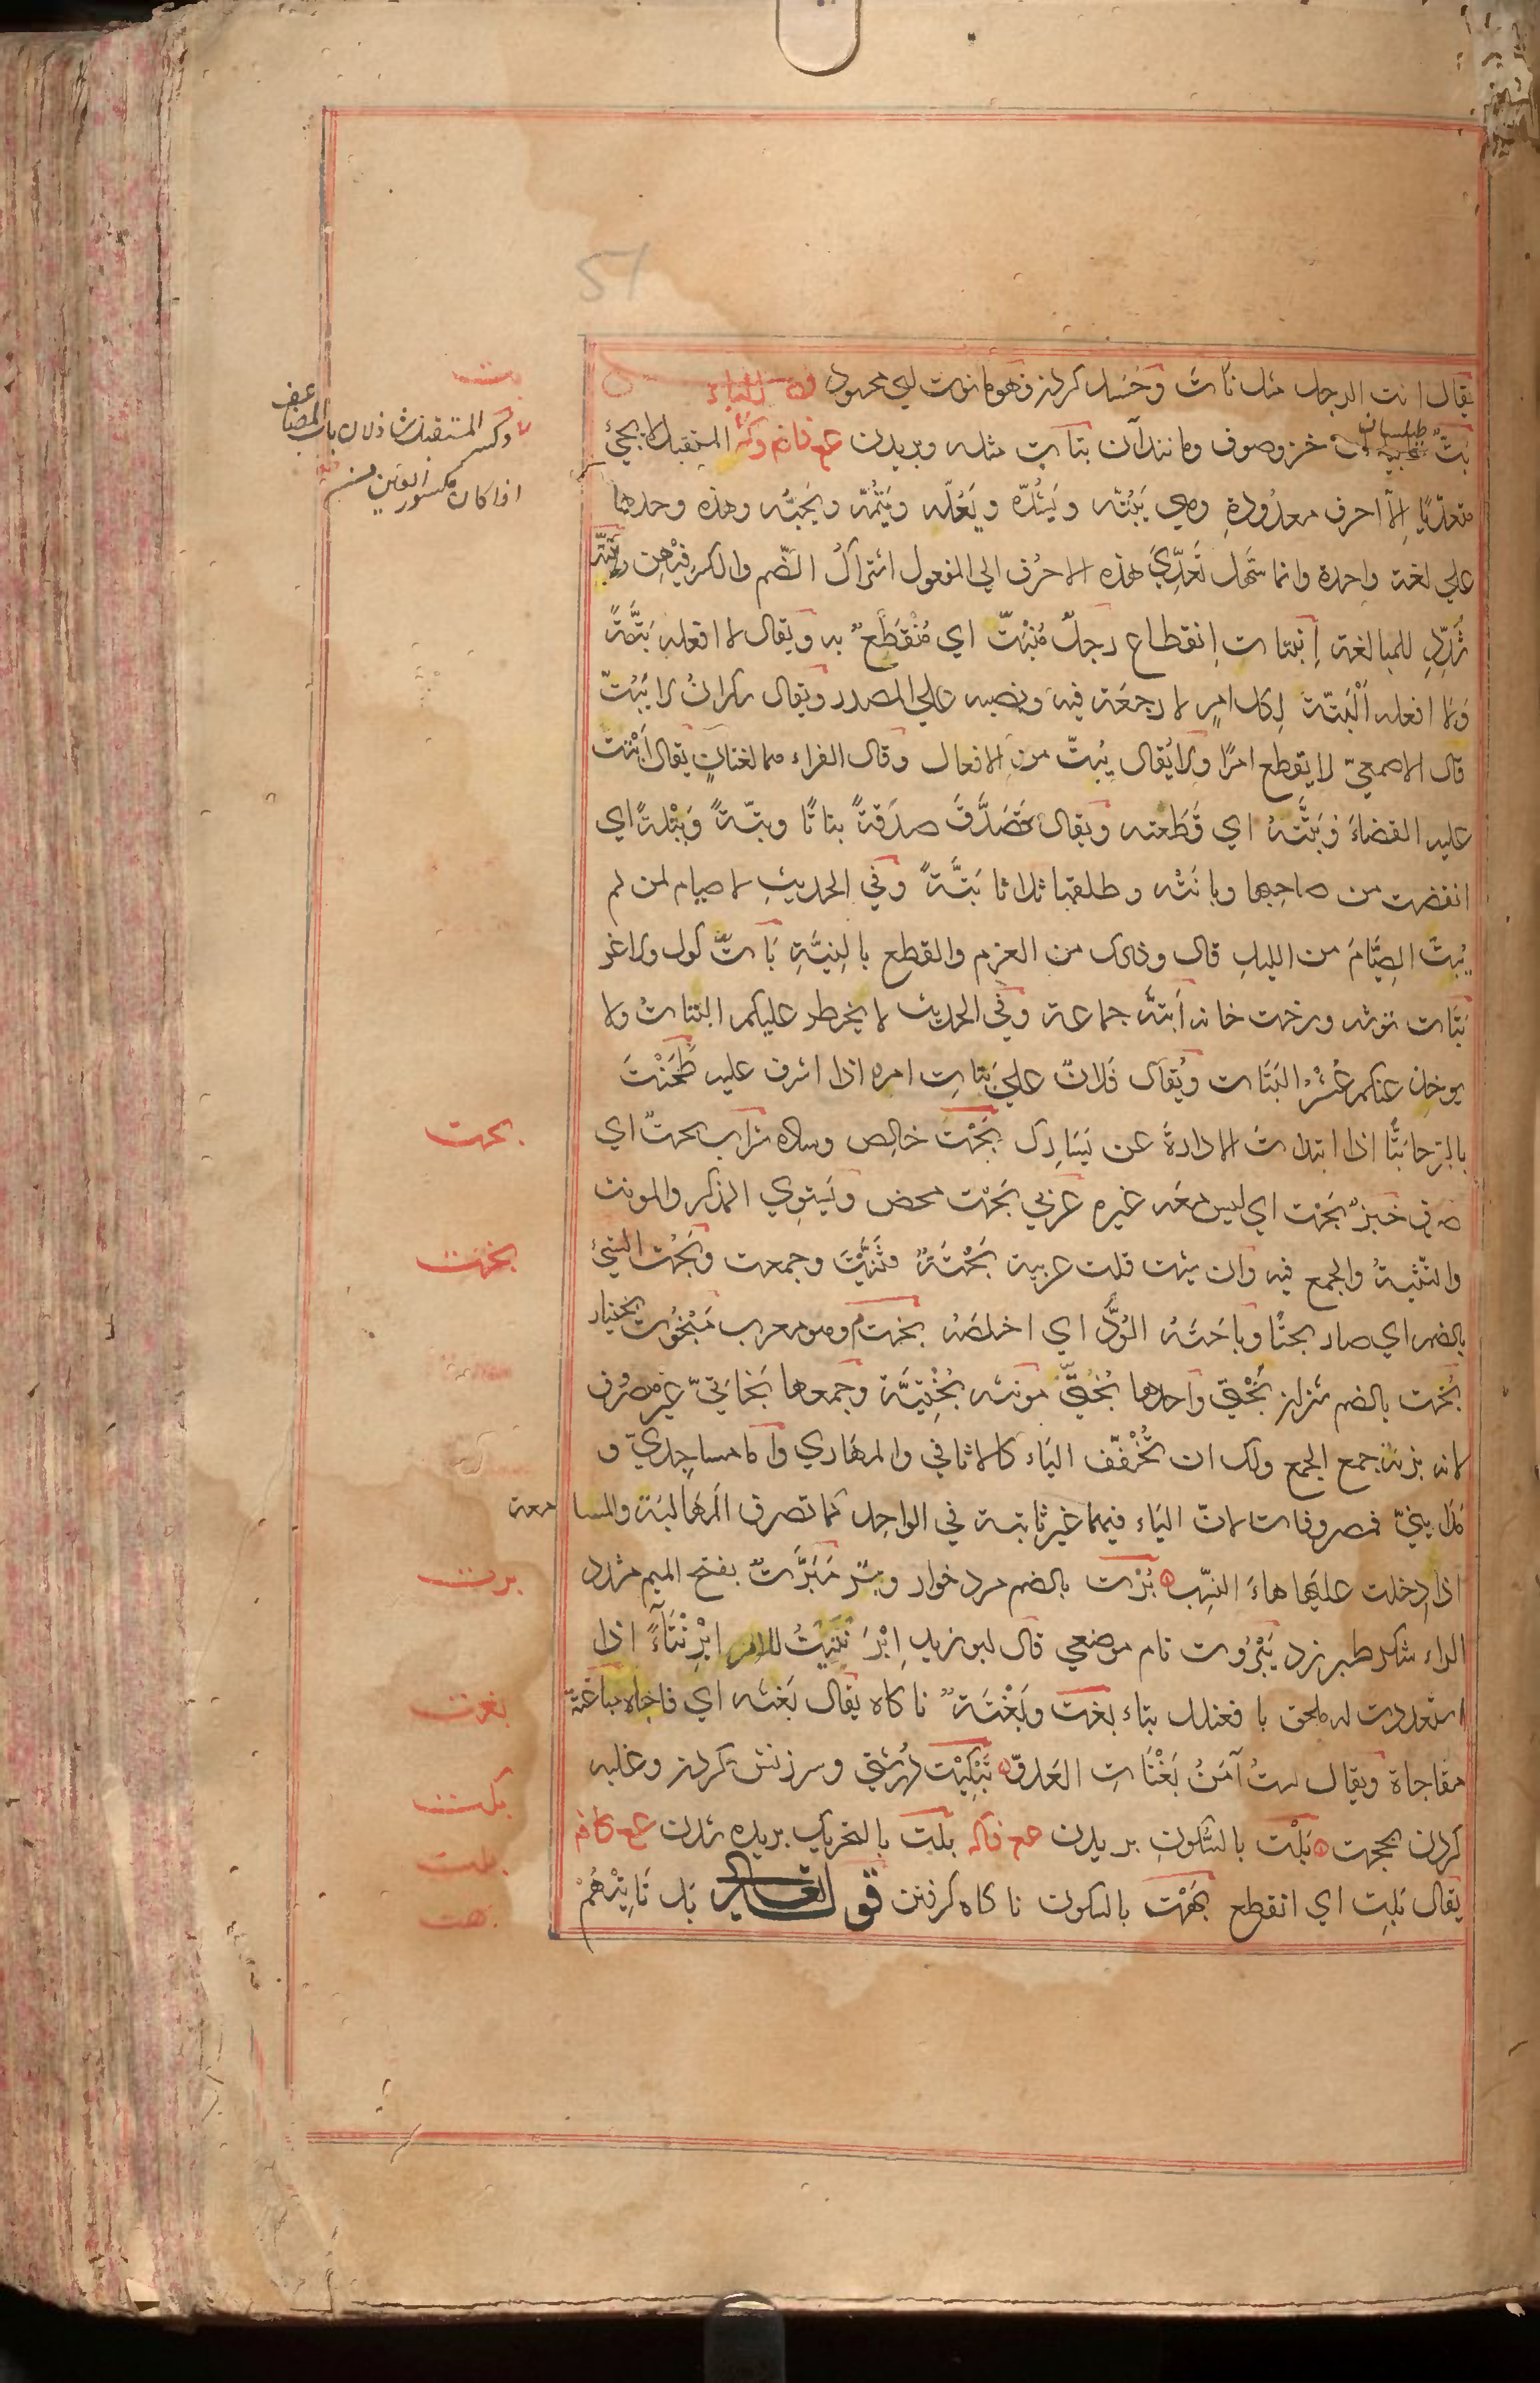 51
يقال انت الرجل مثل نأت وحسد كردن فهو مانوت اي محسود فصل الباء
بتّ طيلسان خز وصوف ومانند آن بتات مثله وبريدن ع ف ا ض م وك المستقبل لا يجئ
متعديًا الا احرف معدودة وهي يَبُتّه ويَشُدّه ويَعُلّه ويَنُمّه ويحبّه وهذه وحدها
علي لغة واحدة وانما سَهُل تعدّي هذه الاحرف الي المفعول اشتراك الضم والكسر فيهن
شدّد للمبالغة انبتات انقطاع رجلٌ مُنْبَتّ اي مُنْقَطَعٌ به ويقال لا افعله بَتَّةً
ولا افعله اَلْبَتّة لكل امرٍ لا رجعة فيه ونصبه علي المصدر ويقال سكران لا يَبُتّ
قال الاصمعيّ لا يقطع امرًا ولا يُقال يُبتّ من الافعال وقال الفراء هما لغتان يقال اَبْتَتُّ
عليه القضاءَ وبَتَتُّهُ اي قَطَعته ويقال تَصَدَّقَ صدقةً بتاتًا وبتّةً وبَتْلةً اي
انقضت من صاحبها وبانَتْه وطلقها ثلاثا بَتَّةً وفي الحديث لا صيام لمن لم
يُبِتّ الصِيَامَ من الليل قال وذلك من العزم والقطع بالنِيَّةِ بَاتٌّ كول ولاغر
بَتَات توشه ورخت خانه اَبِتَّة جماعة وفي الحديث لا يخطر عليكم البتات ولا
يوخذ عنكم عُشْرُ البَتَات ويُقال فلان علي بتات امره اذا اشرف عليه طَحَنْتَ
بالرحا بتًّا اذا ابتدات الادارةَ عن يَسَارِك بَحْت خالص وساده شراب بحتٌ اي
صرف خبزٌ بَحْت اي ليس معه غيره عربي بَحْت محض ويستوي المذكر والمونث
والتثنية والجمع فيه وان شئت قلت عربية بَحْتَةٌ وثَنَّيْتَ وجمعت وبَحُت الشئ
بالضم اي صار بحتًا وباحَتَهُ الوُدَّ اي اخلصَهُ بخت م وهو معرب مَبْخُوت بختيار
بُخت بالضم شتران بُخْتي واحدها بُخْتِيّ مونثه بُخْتِيَّة وجمعها بَخاتيّ غير مصرف
لانه بزنة جمع الجمع ولك ان تُخَفِّف الياء كالاثافي والمهاري واما مساجديّ و
مَدَاينيّ فمصروفات لانّ الياء فيهما غير ثابتة في الواحد كما تصرف المهالبة والمسامعة
اذا دخلت عليها هاء النِسَب بُرْت بالضم مرد خوار وتبر مُبَرَّتٌ بفتح الميم مشدد
الراء شكر طبرزد بَيْرُوت نام موضعي قال ابو زيد اِبْرَنْتَيْتُ للامر ابْرِنْتَاءً اذا
استعددت له ملحق بافعنلل بتاء بغت وبَغْتَةٌ ناكاه يقال بَغَته اي فاجاه مباغتة
مفاجاة ويقال لستُ آمَنُ بَغْتَاتِ العَدوّ تَبْكِيْت درشتي وسرزنش كردن وغلبه
كردن بحجت بَلْت بالسكون بريدن ع ف ا ك بلَت بالتحريك بريده شدن ع ك ا ف
يقال بَلِت اي انقطع بَهْت بالسكون ناكاه كرفتن قوله تعالي بل تاتيهم
وكسر المستقبل شاذ لان باب المضاعف
اذا كان مكسور العين
بت
بحت
بخت
برت
بغت
بكت
بلت
بهت